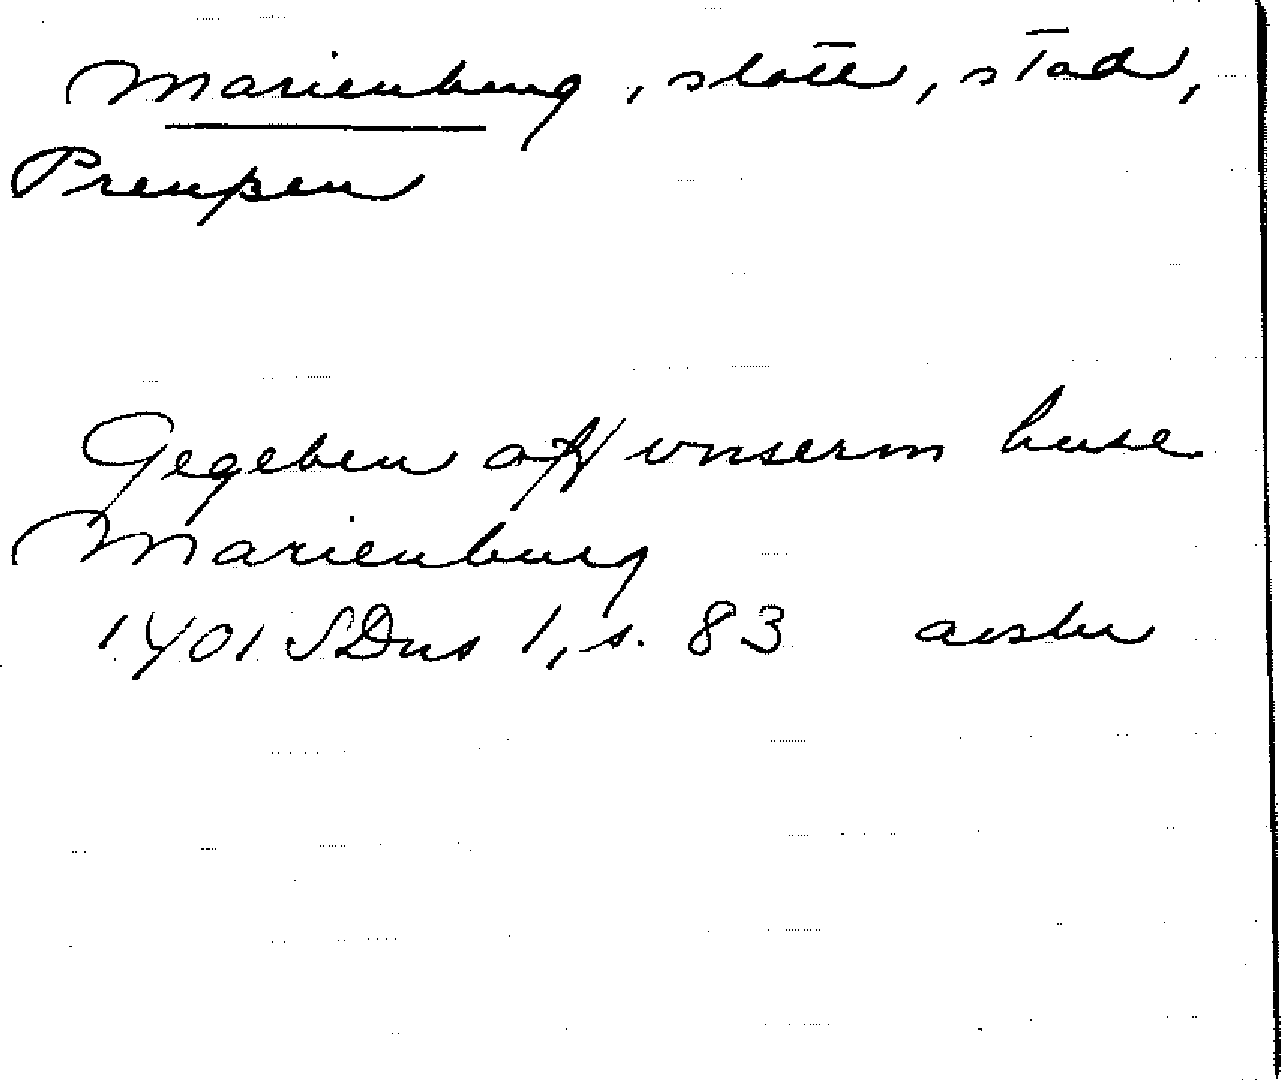 Marienburg, slott, stad,
Preußen
Gegeben off vnserm huse
Marienburg
1401 SDns 1, s. 83 avskr